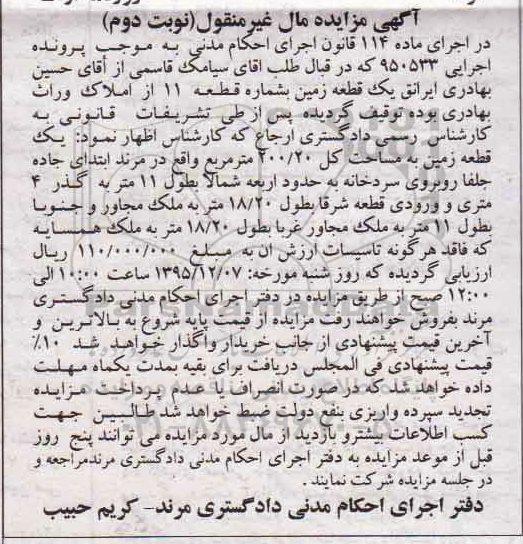 آگهی مزایده مال غیرمنقول(نوبت دوم)
در اجرای ماده ۱۱۴ قانون اجرای احکام مدنی به موجب پرونده
اجرایی ۹۵۰۵۳۳ که در قبال طلب اقای سیامک قاسمی از أقای حسین
بهادری ایرانق یک قطعه زمین بشماره قطعه ۱۱ از املاک وراث
بهادری بوده توقیف گردیده پس از طی تشریفات قانونی به
کارشناس رسمی دادگستری ارجاع که کارشناس اظهار نمود: یک
قطعه زمین به مساحت کل ۲۰۰/۲۰ مترمربع واقع در مرند ابتدای جاده
جلفا روبروی سردخانه به حدود اربعه شمالا بطول ۱۱ متر به گذر ۴
متری و ورودی قطعه شرقا بطول ۱۸/۲۰ متر به ملک مجاور و جنوبا
بطول ۱۱ متر به ملک مجاور غربا بطول ۱۸/۲۰ متر به ملک همسایه
که فاقد هرگونه تاسیسات ارزش ان به مبلغ ۱۱۰/۰۰۰/۰۰۰ ریال
ارزیابی گردیده که روز شنبه مورخه: ۱۳۹۵/۱۲/۰۷ ساعت ۱۰:۰۰ الی
۱۲:۰۰ صبح از طریق مزایده در دفتر اجرای احکام مدنی دادگستری
مرند بفروش خواهند رفت مزایده از قیمت پایه شروع به بالاترین و
آخرین قیمت پیشنهادی از جانب خریدار واگذار خواهد شد ۱۰٪
قیمت پیشنهادی فی المجلس دریافت برای بقیه بمدت یکماه مهلت
داده خواهد شد که در صورت انصراف یا عدم پرداخت مزایده
تجدید سپرده واریزی بنفع دولت ضبط خواهد شد طالبین جهت
کسب اطلاعات بیشترو بازدید از مال مورد مزایده می توانند پنج روز
قبل از موعد مزایده به دفتر اجرای احکام مدنی دادگستری مرندمراجعه و
در جلسه مزایده شرکت نمایند .
دفتر اجرای احکام مدنی دادگستری مرند- کریم حبیب